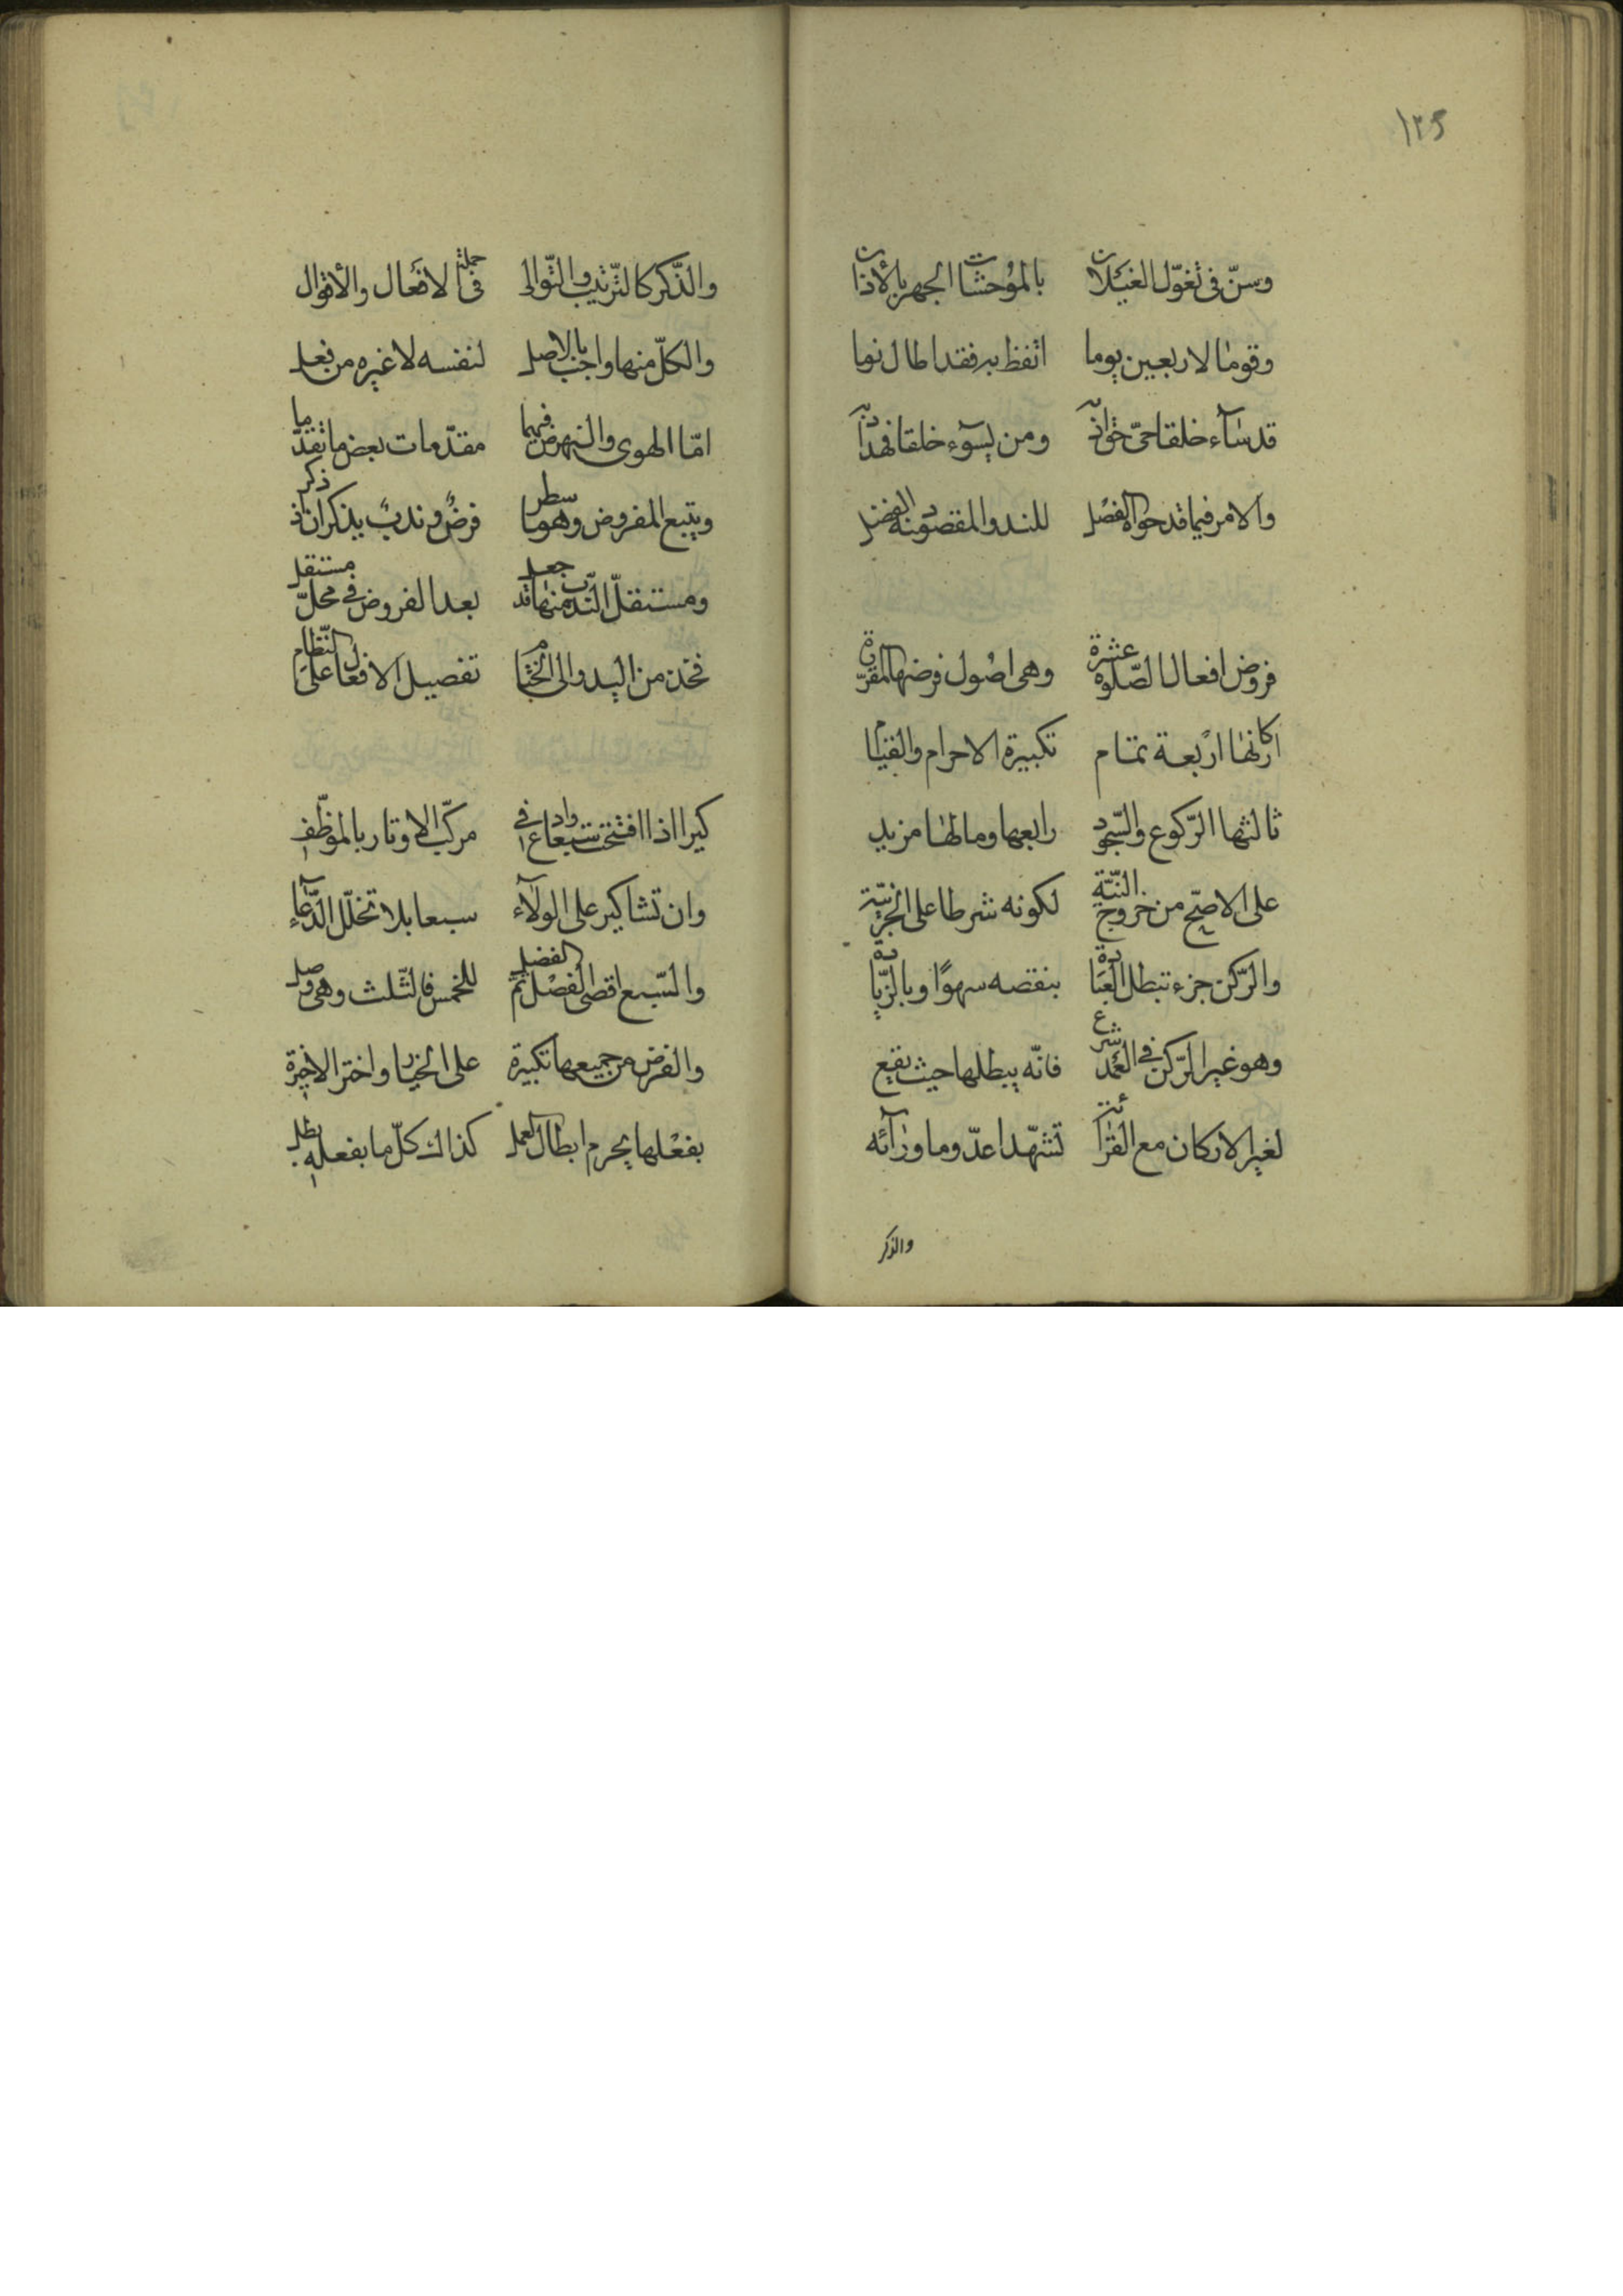 ١٢٥
وسنّ في تغوّل الغيلان بالموحشات الجهر بالأذان
وقومًا لاربعين يوما اتفظ به فقد اطال نوما
قد سآء خلقا حقّ في اذنه ومن يسوء خلقا فهذا دنه
والامر فيما قد حواه الفصل للندب والمقصود منه الفضل
فروض افعال الصّلوة عشرة وهي اصول فرضها المقرّرة
اركانها اربعة تمام تكبيرة الاحرام والقيام
ثالثها الرّكوع والسّجود رابعها وما لها مزيد
على الاصحّ من خروج النّيّة لكونه شرطا على الجزئيّة
والرّكن جزء تبطل العبادة بنقصه سهوًا وبالزّيادة
وهو غير الرّكن في العمد شرع فانّه يبطلها حيث يقع
لغير الاركان مع القرائة تشهّدا عدّ وما ورآئه
والذكر
والذّكر كالتّرتيب والتّوالي في جملة الافعال والأقوال
والكلّ منها واجب بالاصل لنفسه لا غيره من فعل
امّا الهوى والنهوض فهما مقدّمات بعض ما تقدّما
ويتبع المفروض وهو ما سطر فرضٌ وندبٌ بذكر ان ذكر
ومستقلّ النّدب منها قد جعل بعد الفروض في محلّ مستقل
فخذ من البدو الى الختام تفصيل الافعال على النّظام
كبرا اذا افتتحت سبعا واد في مركّب الاوتار بالموظّف
وان تشا كبر على الولآء سبعا بلا تخلّل الدّعآء
والسّبع اقصى الفضل ثمّ الفضل للخمس فالثّلث وهي وصل
والفرض من جميعها تكبيرة على الخيار واختر الاخيرة
بفعلها يحرم ابطال العمل كذاك كلّ ما بفعله بطل